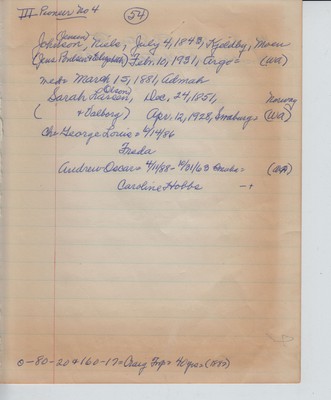 III Pioneer No 4
54
(Jensen)
Johnson, Niels, July 4, 1843, Kjeldby, Moen
(Jens Poulsen & Elizabeth) Feb. 10, 1931, Argo= (WA)
med= March 15, 1881, Admah
Olson
Sarah Larsen, Dec. 24, 1851, Norway
( & Valborg) Apr. 12, 1928, Swaburg= (WA)
Ch= George Louis= 6/14/86
Freda
Andrew Oscar= 4/11/88- 10/31/63 = (WA)
Caroline Hobbs -+
0-80-20 & 160-17= Craig Twp= 40 yrs= (1880)